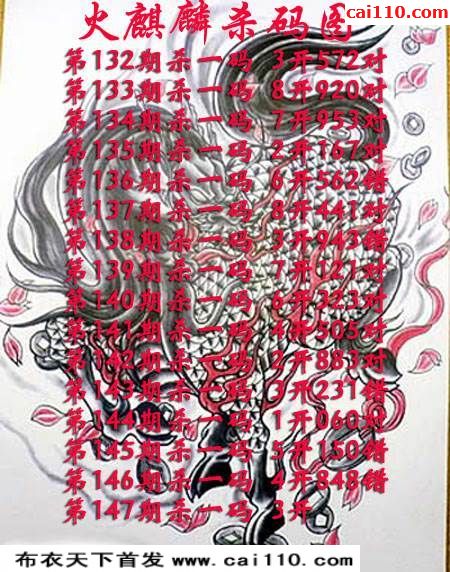 cai110.com
火麒麟杀码图
第132期杀一码 3开572对
第133期杀一码 8开920对
第134期杀一码 7开953对
第135期杀一码 2开167对
第136期杀一码 6开562错
第137期杀一码 8开441对
第138期杀一码 3开943错
第139期杀一码 7开121对
第140期杀一码 6开323对
第141期杀一码 4开505对
第142期杀一码 2开883对
第143期杀一码 3开231错
第144期杀一码 1开060对
第145期杀一码 5开150错
第146期杀一码 4开848错
第147期杀一码 3开
布衣天下首发 www.cai110.com